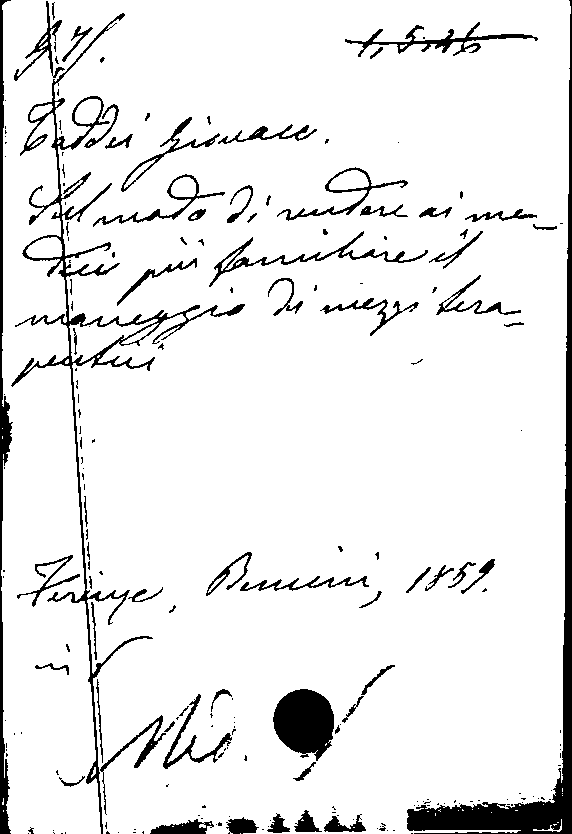 1,5,46
Taddei Giovacc.
Sul modo di rendere ai me-
dici più familiare il
maneggio di mezzi tera-
peutici
Firenze, Bencini, 1859.
in 8
Med.